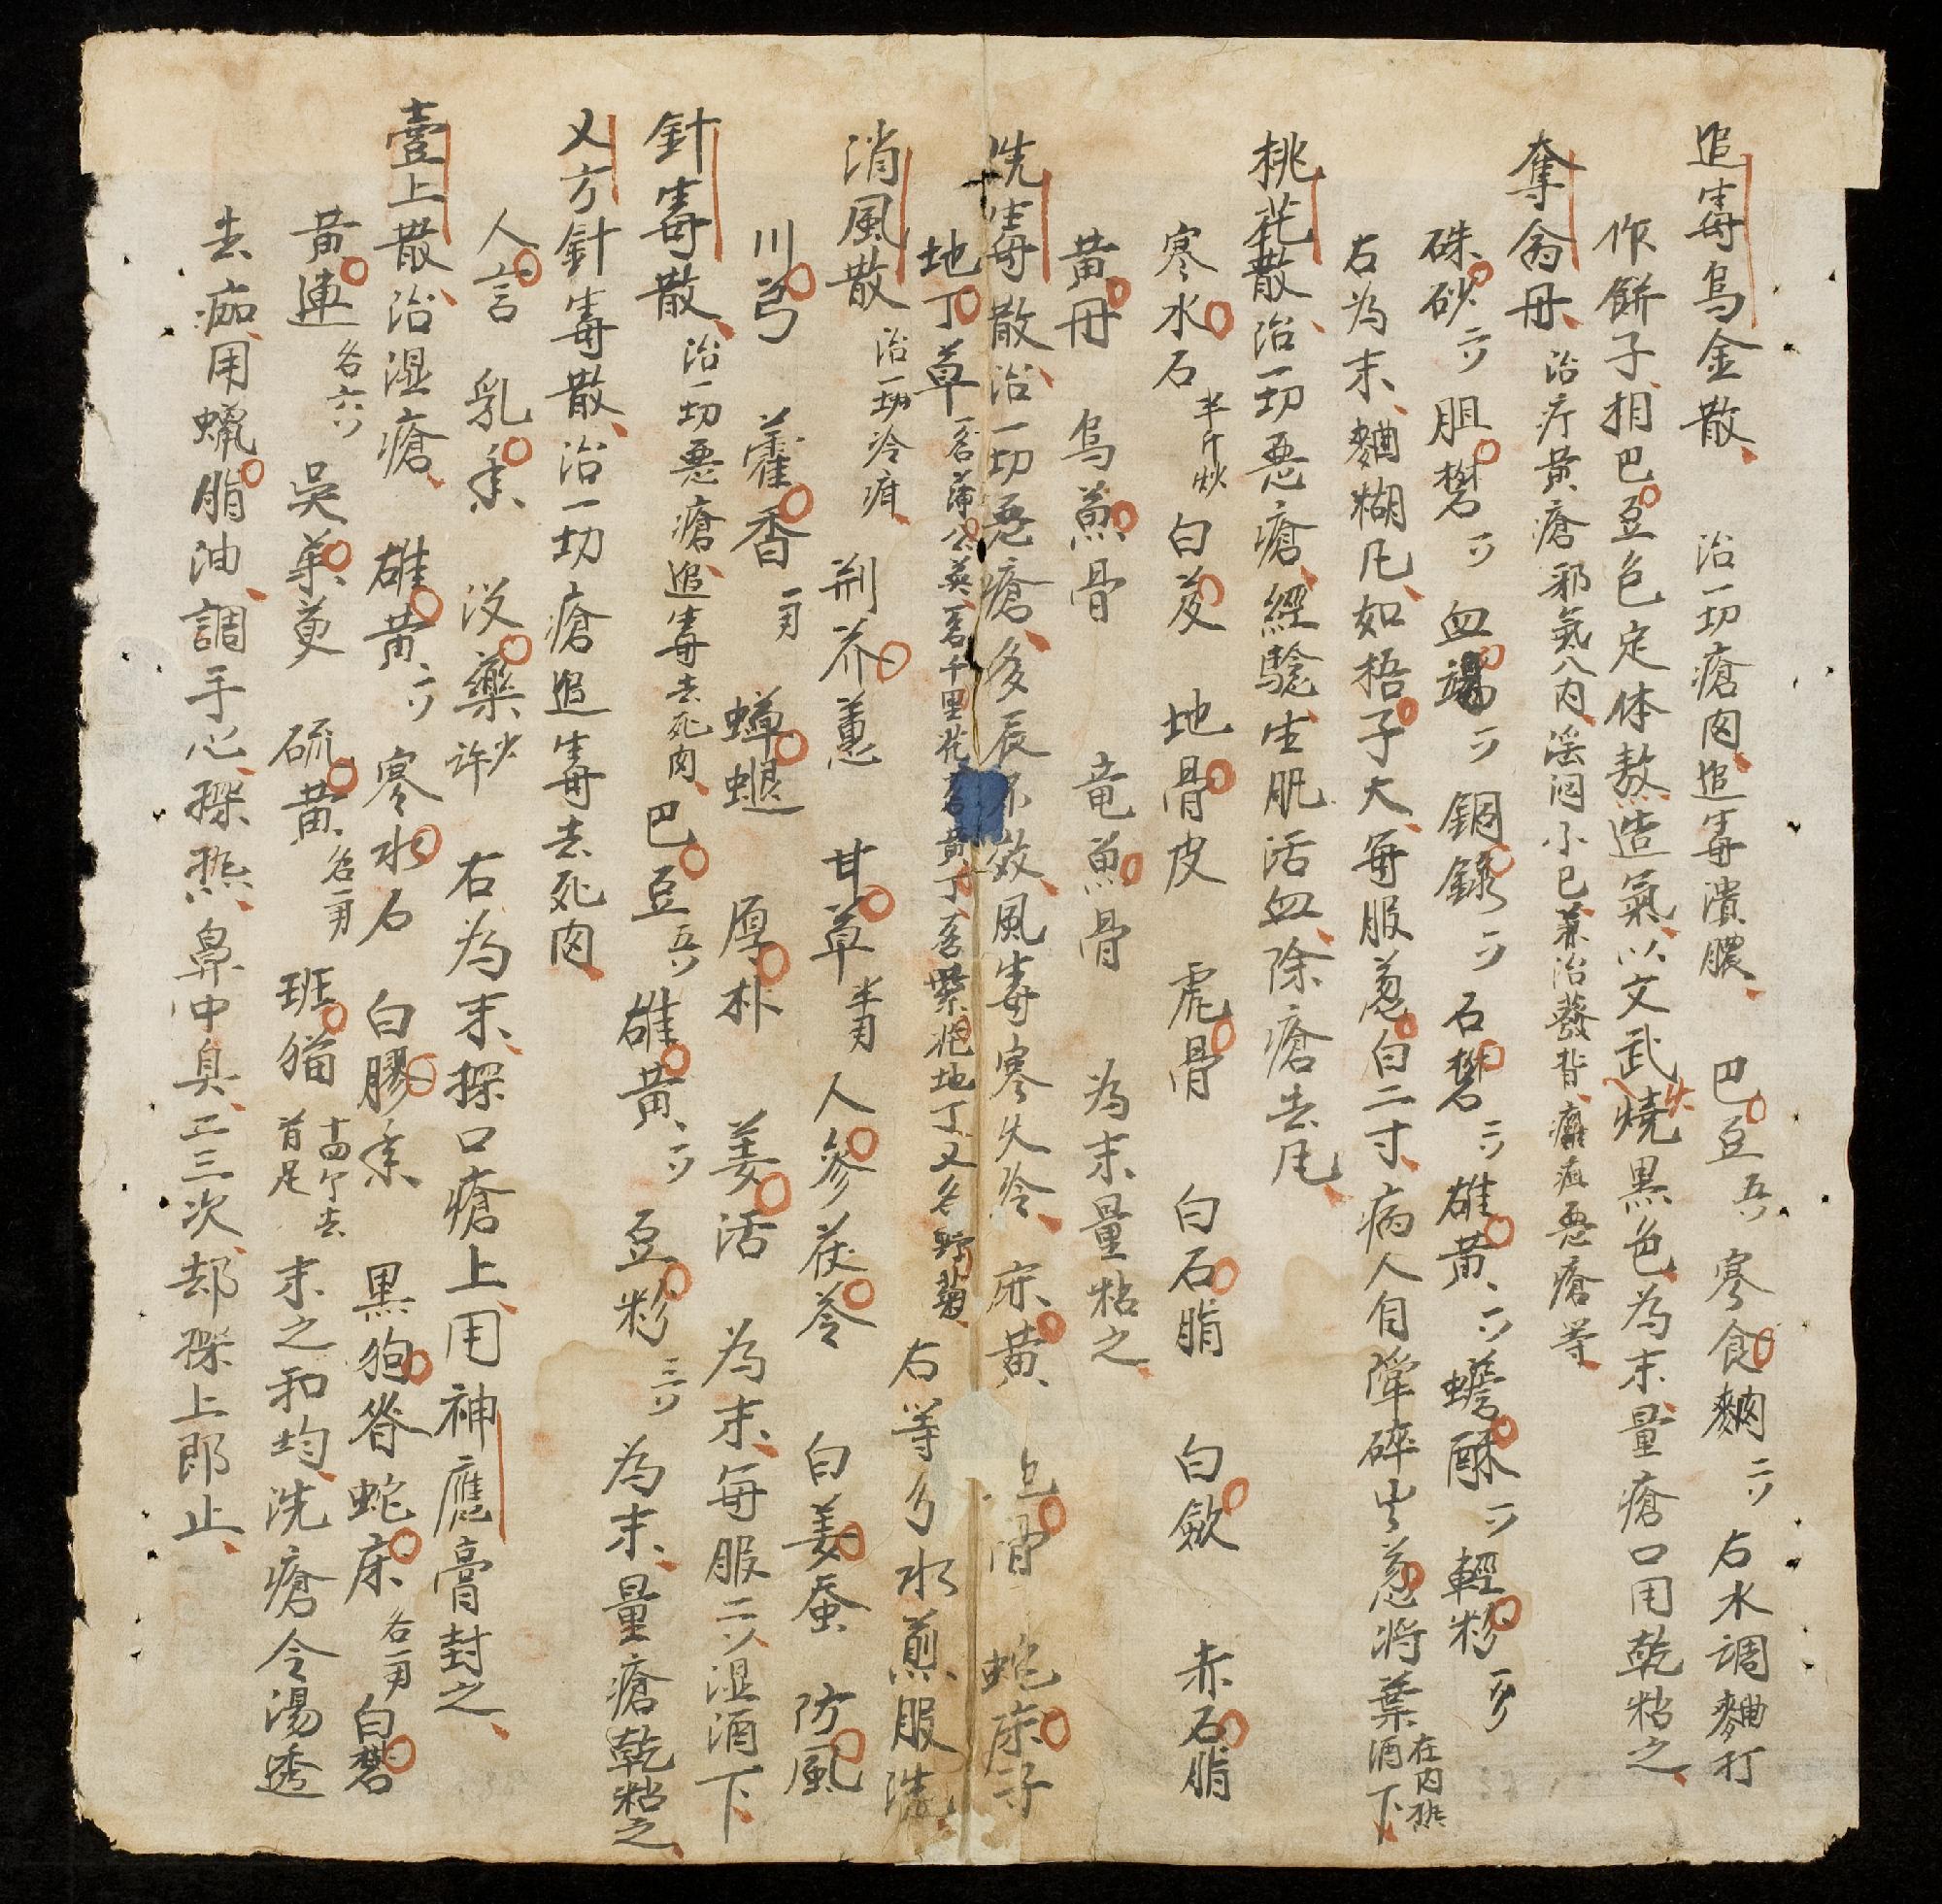 追毒烏金散 治一切瘡肉追毒潰膿 巴豆五 寒食麵二 右水調麵打
作餅子相巴豆色定体熬造氣以文武火燒黒色為末量瘡口用乾粘之
奪命丹 治疔黄瘡邪氣入内淫悶不已兼治發背癰疽悪瘡等
硃砂二 胆礬一 血竭一 銅錄一 石礬二 雄黄一 蟾酥一 輕粉
右為末麵糊凡如梧子大每服葱白二寸病人自嚼碎 葱將葉酒下在内
桃花散治一切悪瘡經驗生肌活血除瘡去
寒水石半斤炒 白芨 地骨皮 虎骨 白石脂 白斂 赤石脂
黄丹 烏魚骨 竜魚骨 為末量粘之
洗毒散治一切悪瘡多辰不效風毒寒久冷 床黄 骨 蛇床子
地丁草一名蒲公英一名千里花一名黄丁一名紫花地丁又名野菊 右等分水煎服洗
消風散 治一切冷疽 荊芥蕙 甘草半 人參茯苓 白姜蚕 防風
川芎 藿香 蟬蜕 厚朴 姜活 為末每服二 湿酒下
針毒散 治一切悪瘡追毒去死肉 巴豆五 雄黄一 豆粉三 為末量瘡乾粘之
又方針毒散治一切瘡追毒去死肉
人言 乳香 没藥少许 右為末探口瘡上用神應膏封之
壹上散治湿瘡 雄黄二 寒水石 白膠香 黒狗脊 蛇床各一 白礬
黄連各六 吳茱萸 硫黄各一 班猫十四个去首足 末之和均洗瘡令湯透
去痂用蠟脂油調手心 熱鼻中臭二三次却 上郎止